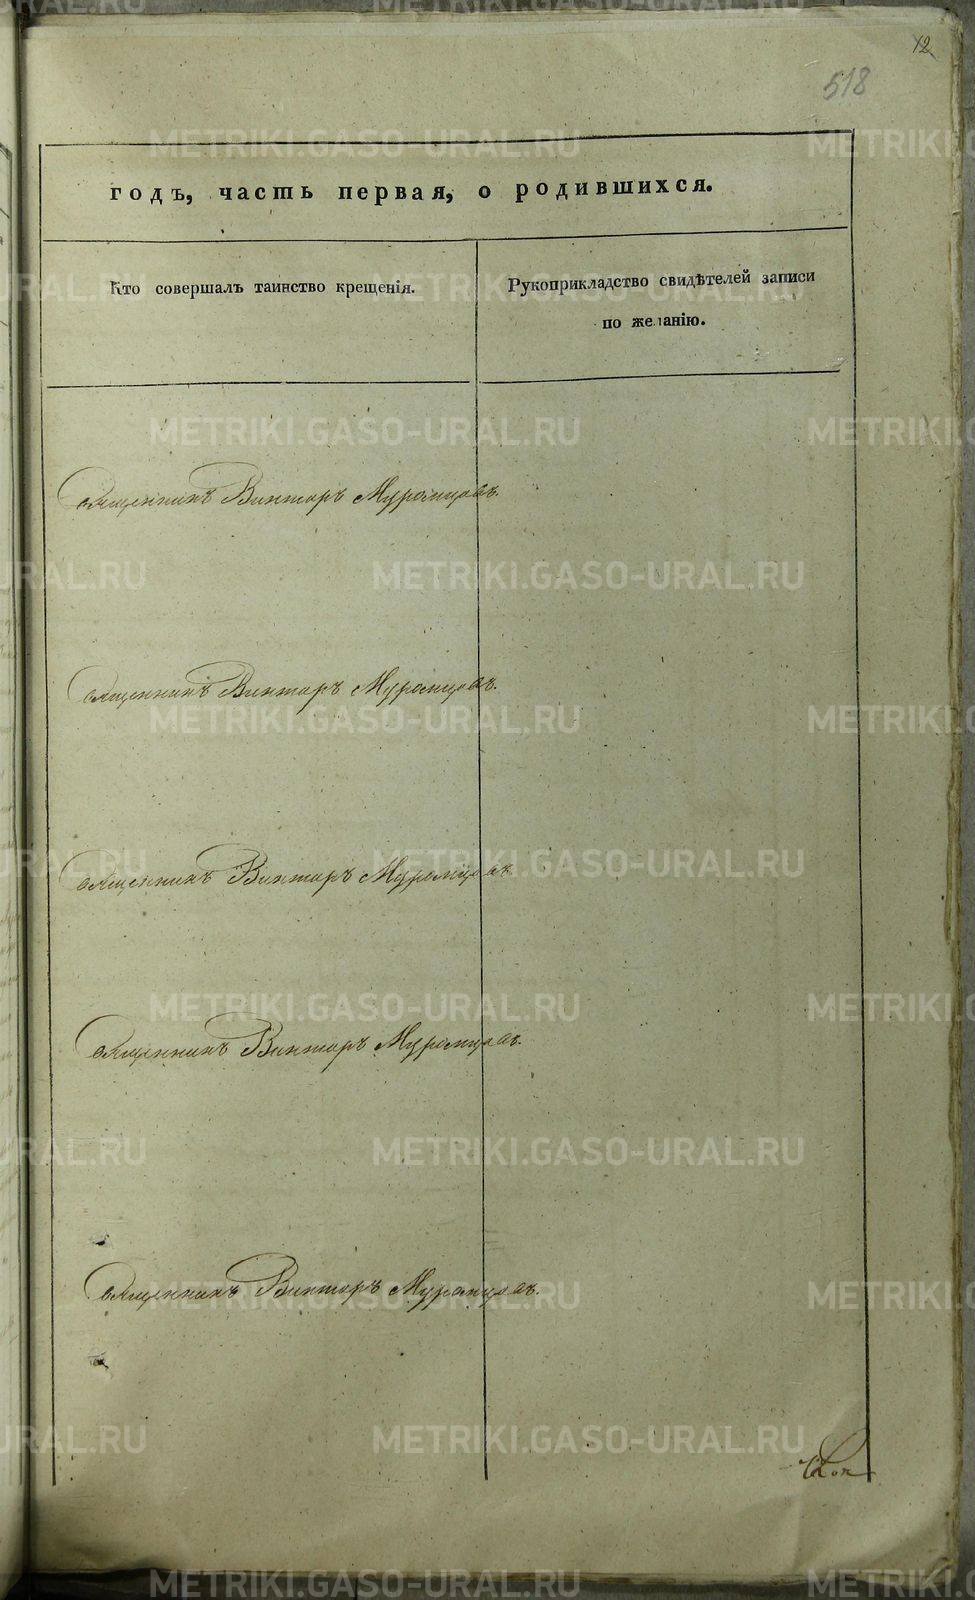 12
518
годъ, часть первая, о родившихся.
Кто совершалъ таинство крещенія.
Рукоприкладство свидѣтелей записи
по желанію.
Священникъ Викторъ Муромцовъ.
Священникъ Викторъ Муромцовъ.
Священникъ Викторъ Муромцовъ.
Священникъ Викторъ Муромцовъ.
Священникъ Викторъ Муромцовъ.
METRIKI.GASO-URAL.RU